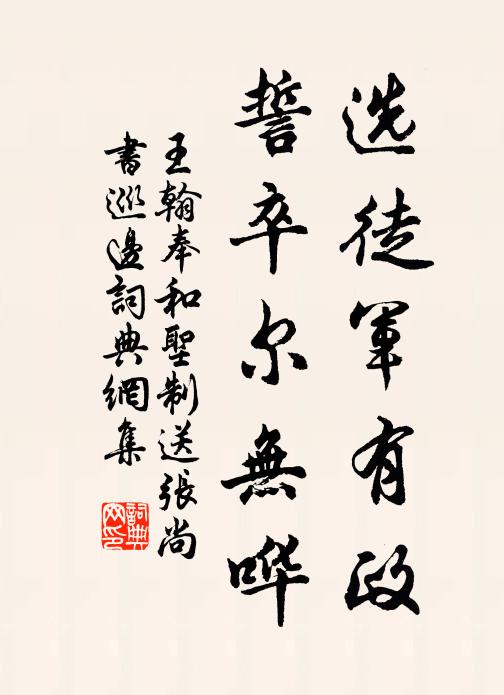 选徒军有政
誓卒尔無哗
王翰奉和聖制送張尚
書巡邊詞典網集
詞典网印